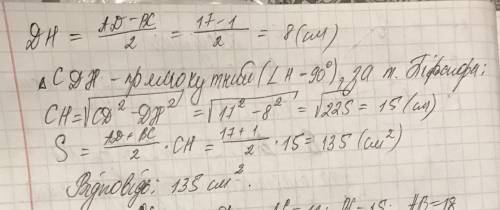 DH = (AD - BC)/2 = (17 - 1)/2 = 8 (см)
△ CDH - прямокутний (∠H - 90°), за т. Піфагора:
CH = √(CD² - DH²) = √(17² - 8²) = √225 = 15 (см)
S = (AD + BC)/2 · CH = (17 + 1)/2 · 15 = 135 (см²)
Відповідь: 135 см².